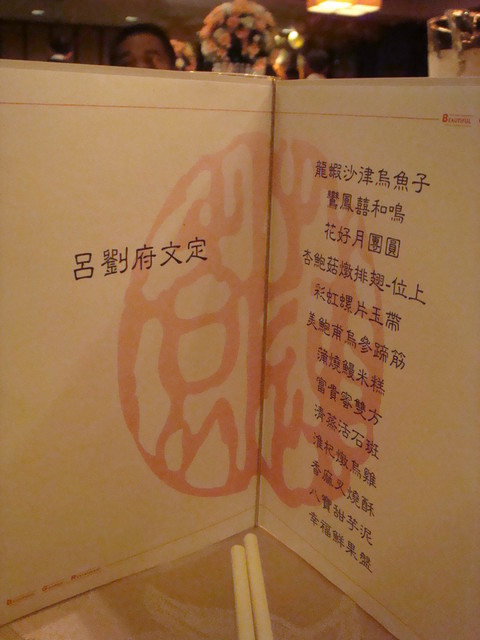 呂劉府文定
BEAUTIFUL
龍蝦沙律烏魚子
鸞鳳囍和鳴
花好月團圓
杏鮑菇燉排翅-位上
彩虹螺片玉帶
美鮑甫烏參蹄筋
蒲燒鰻米糕
富貴蜜雙方
清蒸活石斑
淮杞燉烏雞
香麻叉燒酥
八寶甜芋泥
幸福鮮果盤